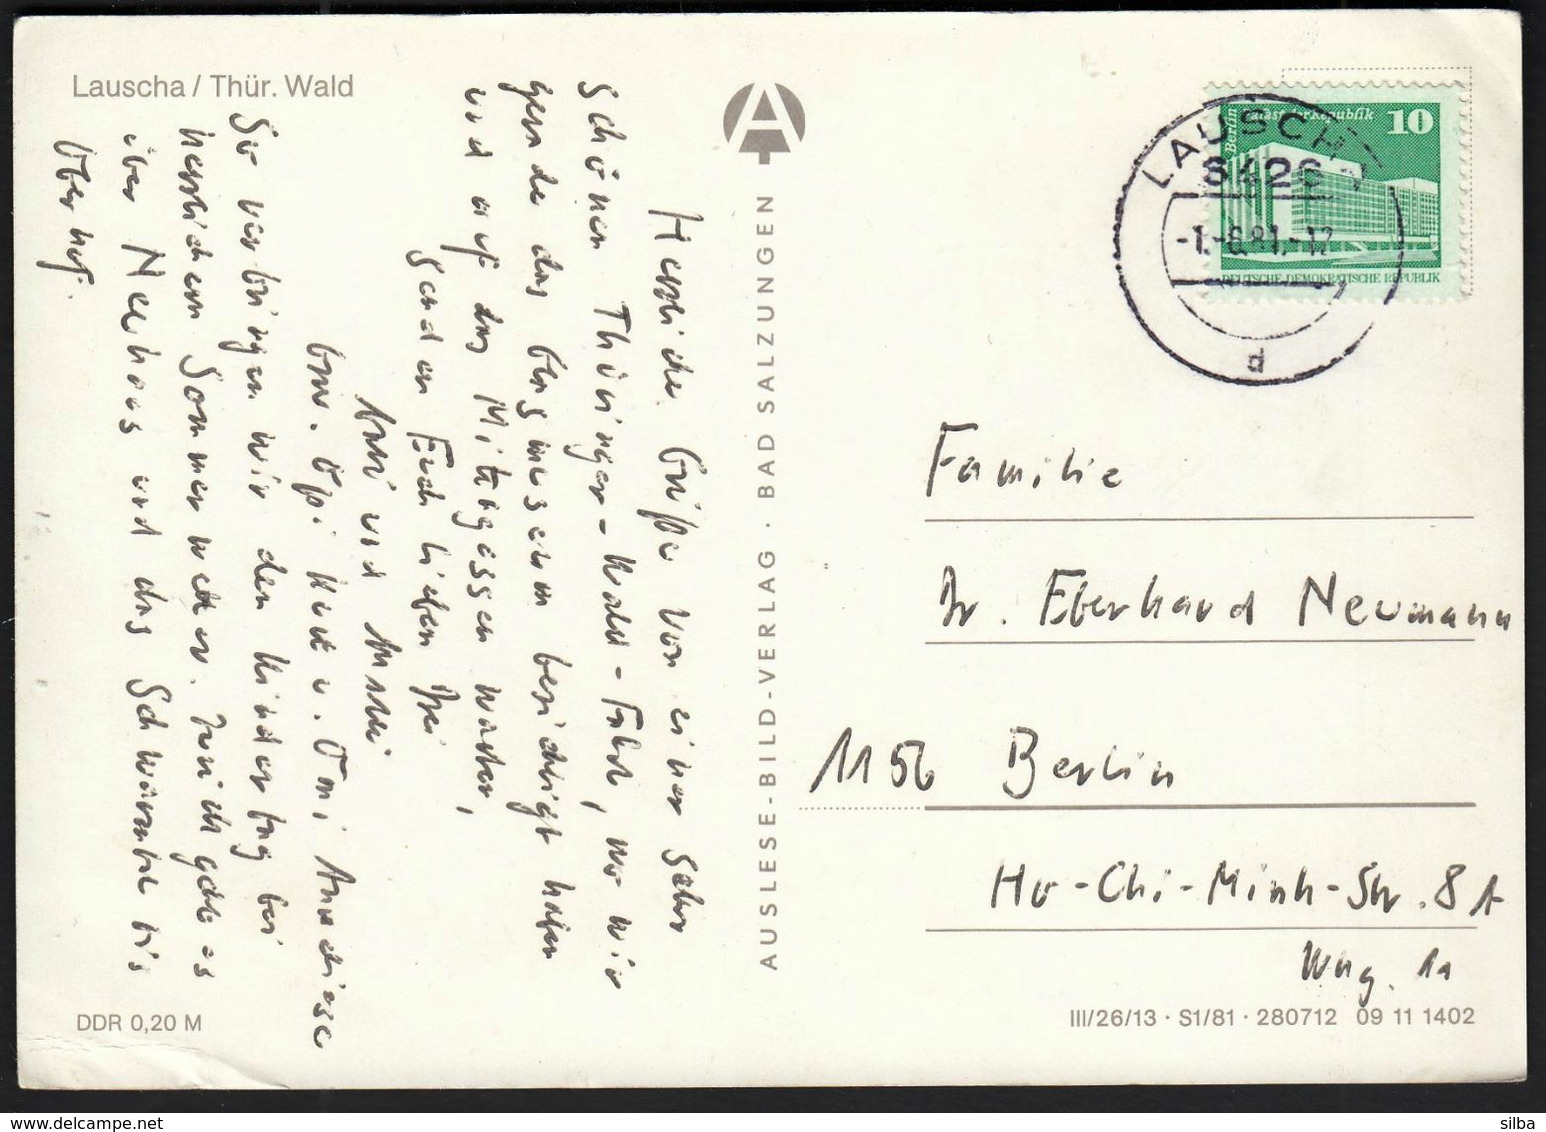 Lauscha / Thür. Wald
Herzliche Grüße von einer sehr
schönen Thüringer-Wald-Fahrt, wo wir
gerade das besichtigt haben
und auf das Mittagessen warten,
senden Euch lieben
und
bzw. Opi Kurt u. Omi Auf diese
verbringen wir den Kindertag bei
herrlichem Sommerwetter. geht es
über Neuhaus und das Schwarzatal bis
Oberhof.
DDR 0,20 M
AUSLESE-BILD-VERLAG · BAD SALZUNGEN
Berlin Palast der Republik 10
DEUTSCHE DEMOKRATISCHE REPUBLIK
LAUSCHA
6426
-1.-6.81.-12
d
Familie
Dr. Eberhard Neumann
1156 Berlin
Ho-Chi-Minh-Str. 8A
Wng. 1a
III/26/13 · S1/81 · 280712 09 11 1402
silba
www.delcampe.net